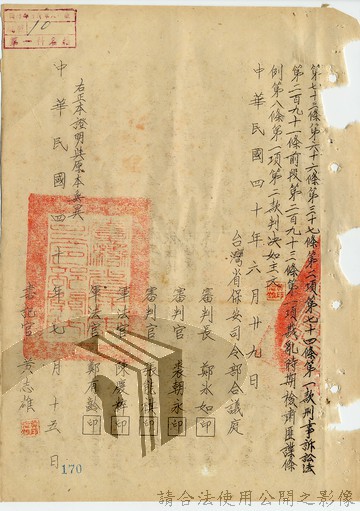 第七十二條第六十六條第三十七條第二項第七十四條第一款刑事訴訟法
第二百九十一條前段第二百九十三條第一項戡亂時期檢肅匪諜條
例第八條第一項第二款判決如主文
中華民國四十年六月廿九日
台灣省保安司令部合議庭
審判長 鄭氷如 印
審判官 裘朝永 印
審判官 印
軍法官 陳慶粹 印
軍法官 鄭有齡 印
右正本證明與原本無異
中華民國四十年七月十五日
書記官 黃志雄
170
請合法使用公開之影像